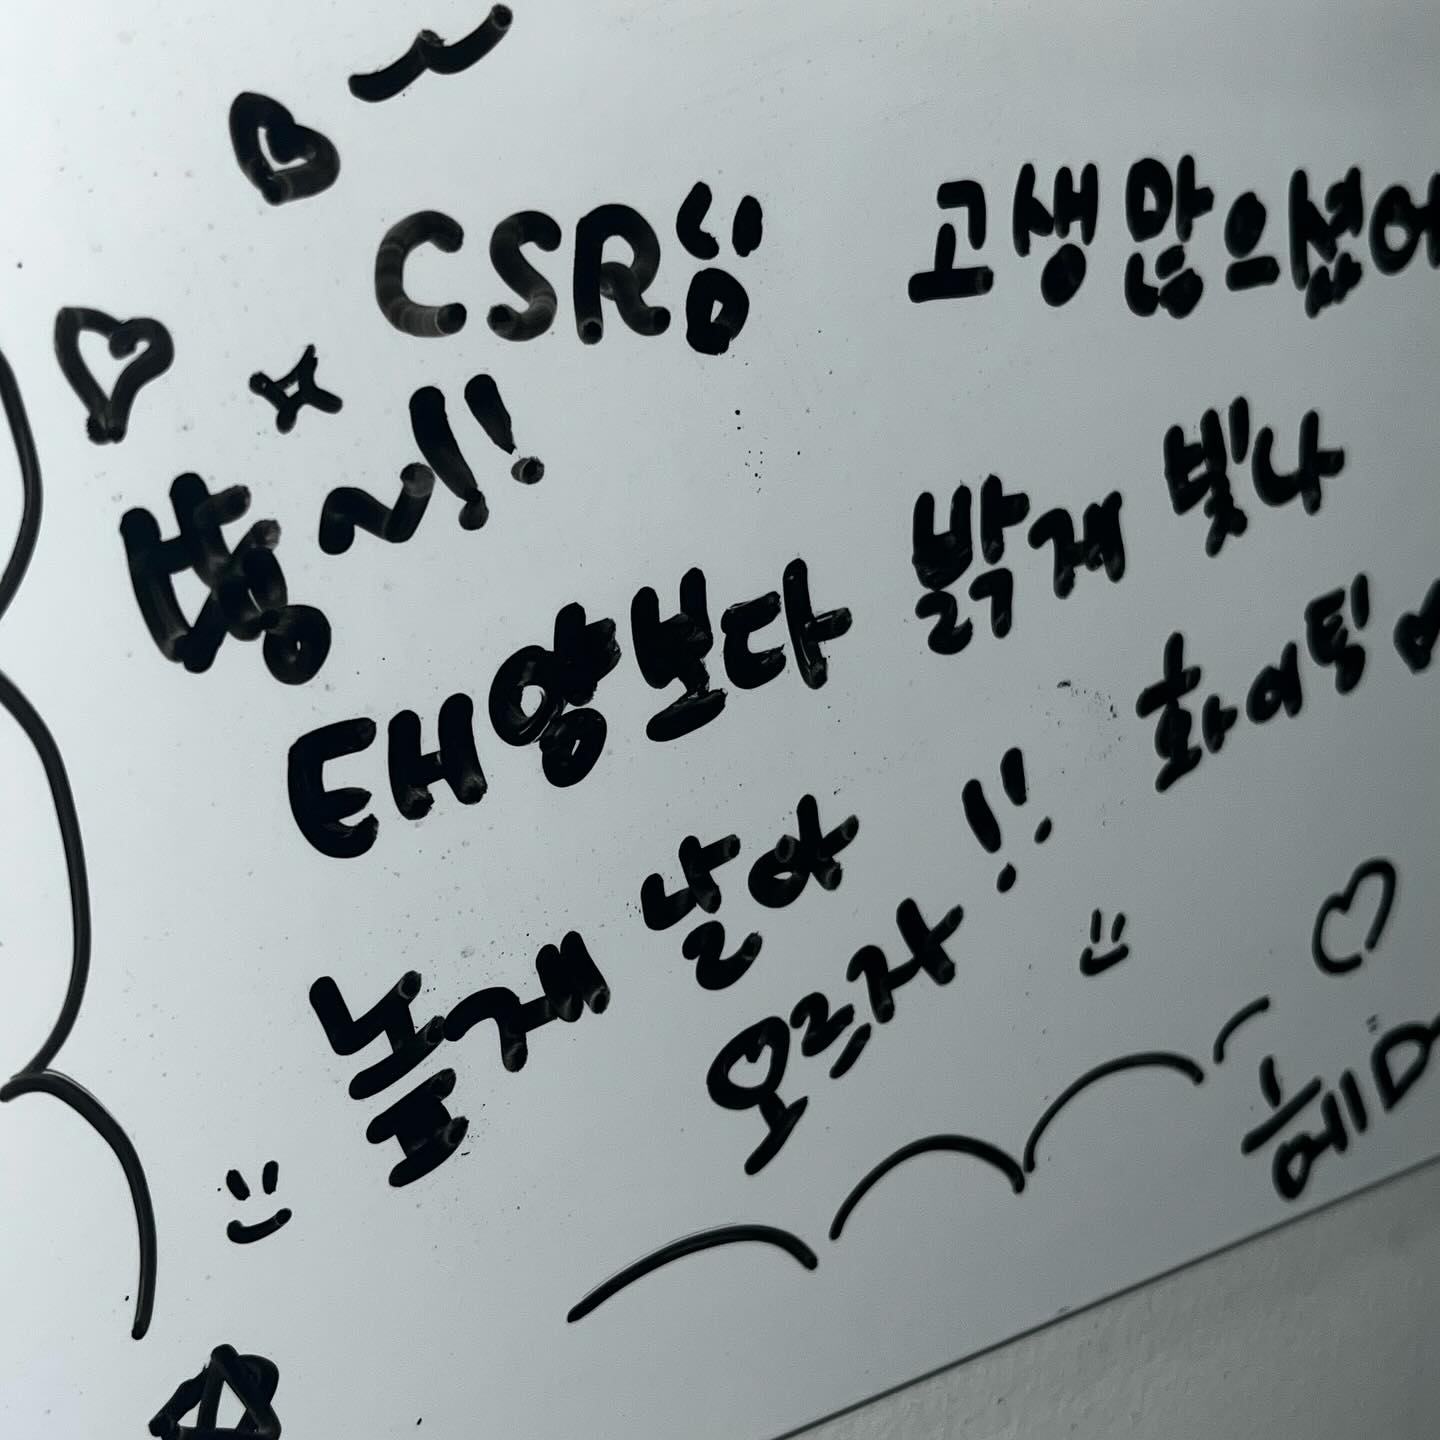 CSR님 고생많으셨어
~!!
태양보다 밝게 빛나
높게 날아
오르자 !!
화이팅